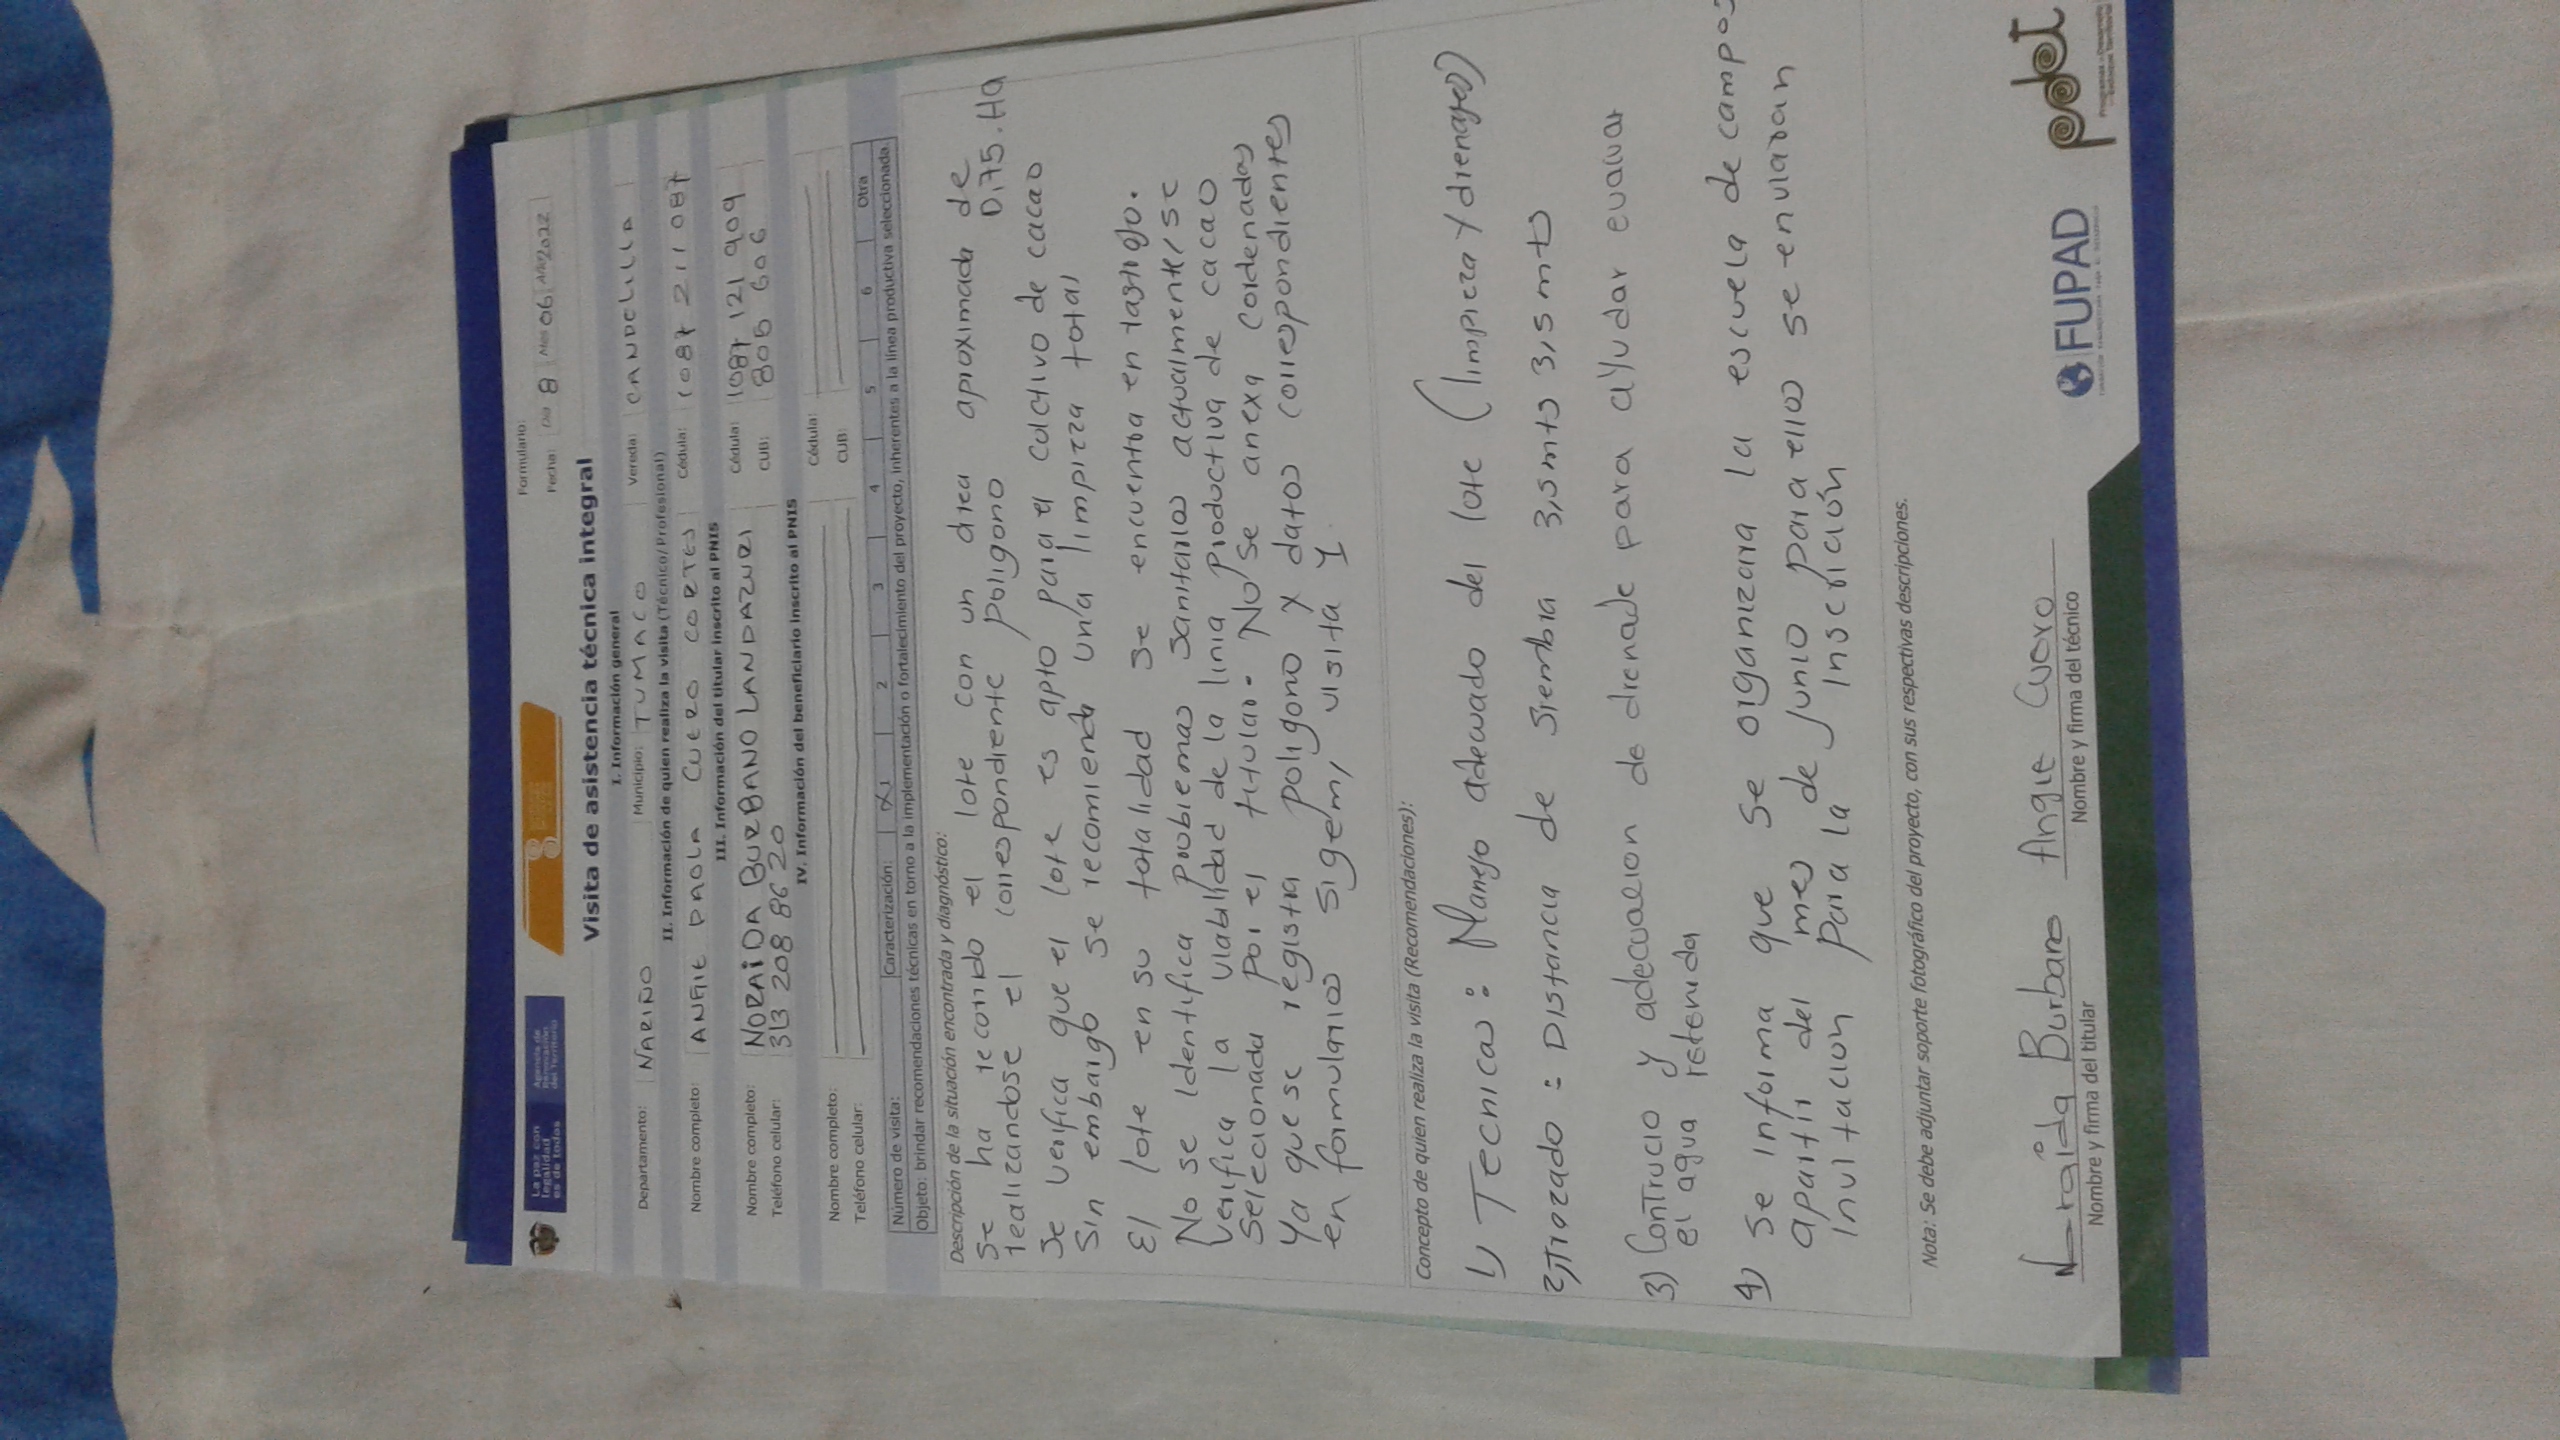 La paz con
legalidad
es de todos
Agencia de
Renovación
del Territorio
Formulario:
Fecha: Día 8 Mes 06 Año 2022
Visita de asistencia técnica integral
I. Información general
Departamento: NARIÑO Municipio: TUMACO Vereda: CANDELILLA
II. Información de quien realiza la visita (Técnico/Profesional)
Nombre completo: ANGIE PAOLA CUERO CORTES Cédula: 1087 211 087
III. Información del titular inscrito al PNIS
Nombre completo: NORAIDA BURBANO LANDAZURI Cédula: 1087 121 909
Teléfono celular: 313 208 86 20 CUB: 805 606
IV. Información del beneficiario inscrito al PNIS
Nombre completo: Cédula:
Teléfono celular: CUB:
Número de visita: Caracterización: X 1 2 3 4 5 6 Otra
Objeto: brindar recomendaciones técnicas en torno a la implementación o fortalecimiento del proyecto, inherentes a la línea productiva seleccionada.
Descripción de la situación encontrada y diagnóstico:
Se ha recorrido el lote con un área aproximada de
realizandose el correspondiente poligono 0,75.Ha
Se verifica que el lote es apto para el culctivo de cacao
Sin embargo se recomienda una limpieza total
El lote en su totalidad se encuentra en rastrojo.
No se identifica problemas sanitarios actualmente/se
verifica la viabilidad de la linia productiva de cacao
seleccionada por el titular. No se anexa cordenadas
Ya que se registra poligono y datos correspondientes
en formularios sigem, visita 1.
Concepto de quien realiza la visita (Recomendaciones):
1) Tecnicas: Manejo adecuado del lote (limpieza y drenajes)
2) Trazado: Distancia de siembra 3,5mts 3,5mts
3) Contrucio y adecuacion de drenade para ayudar evacuar
el agua retenida
4) se informa que se organizara la escuela de campos
apartir del mes de junio para ellos se enviaran
invitacion para la inscrición
Nota: Se debe adjuntar soporte fotográfico del proyecto, con sus respectivas descripciones.
Noraida Burbano Angie Cuero
Nombre y firma del titular Nombre y firma del técnico
FUPAD
pdet